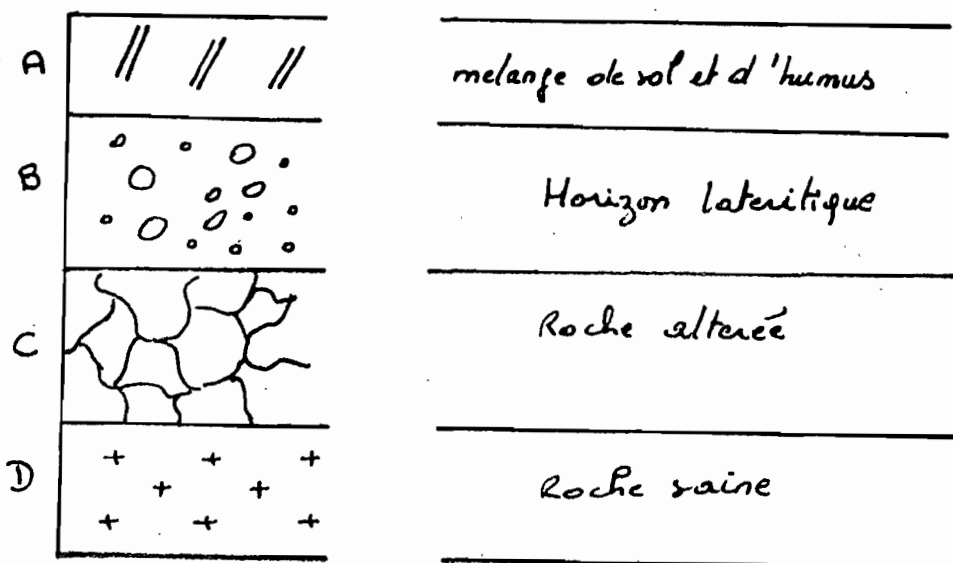 A
melange de sol et d'humus
B
Horizon lateritique
C
Roche alterée
D
Roche saine